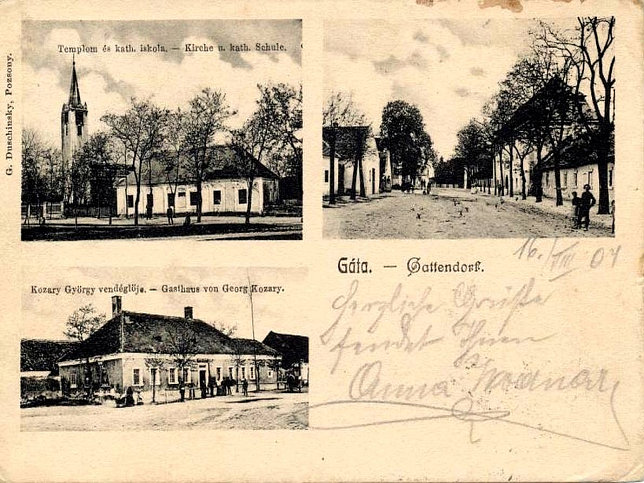 G. Duschinsky, Pozsony.
Templom és kath. iskola. — Kirche u. kath. Schule.
Gáta. — Gattendorf.
16./VIII 04
Kozary György vendéglöje. — Gasthaus von Georg Kozary.
Herzliche Grüße
sendet Ihnen
Anna